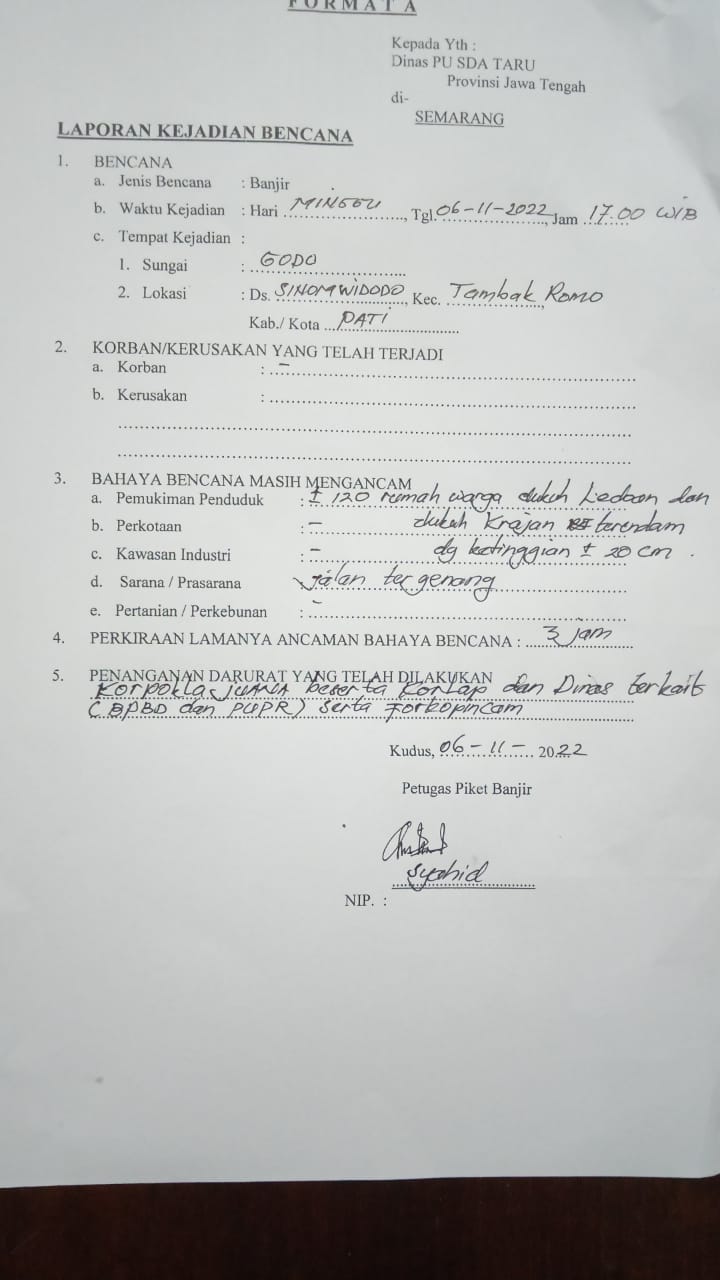 FORMAT A
Kepada Yth :
Dinas PU SDA TARU
Provinsi Jawa Tengah
di-
SEMARANG
LAPORAN KEJADIAN BENCANA
1. BENCANA
a. Jenis Bencana : Banjir
b. Waktu Kejadian : Hari MINGGU, Tgl. 06-11-2022, Jam 17.00 WIB
c. Tempat Kejadian :
1. Sungai : GODO
2. Lokasi : Ds. SINOMWIDODO, Kec. Tambak Romo
Kab./ Kota PATI
2. KORBAN/KERUSAKAN YANG TELAH TERJADI
a. Korban : -
b. Kerusakan :
3. BAHAYA BENCANA MASIH MENGANCAM
a. Pemukiman Penduduk : ± 120 rumah warga dukuh Ledoon dan
b. Perkotaan : - dukuh Krajan terendam
c. Kawasan Industri : - dg ketinggian ± 20 cm .
d. Sarana / Prasarana : Jalan tergenang
e. Pertanian / Perkebunan : -
4. PERKIRAAN LAMANYA ANCAMAN BAHAYA BENCANA : 3 jam
5. PENANGANAN DARURAT YANG TELAH DILAKUKAN
Korpoklas JUANA beserta Korlap dan Dinas terkait
(BPBD dan PUPR) serta Forkopincam
Kudus, 06-11- 2022
Petugas Piket Banjir
Syahid
NIP. :